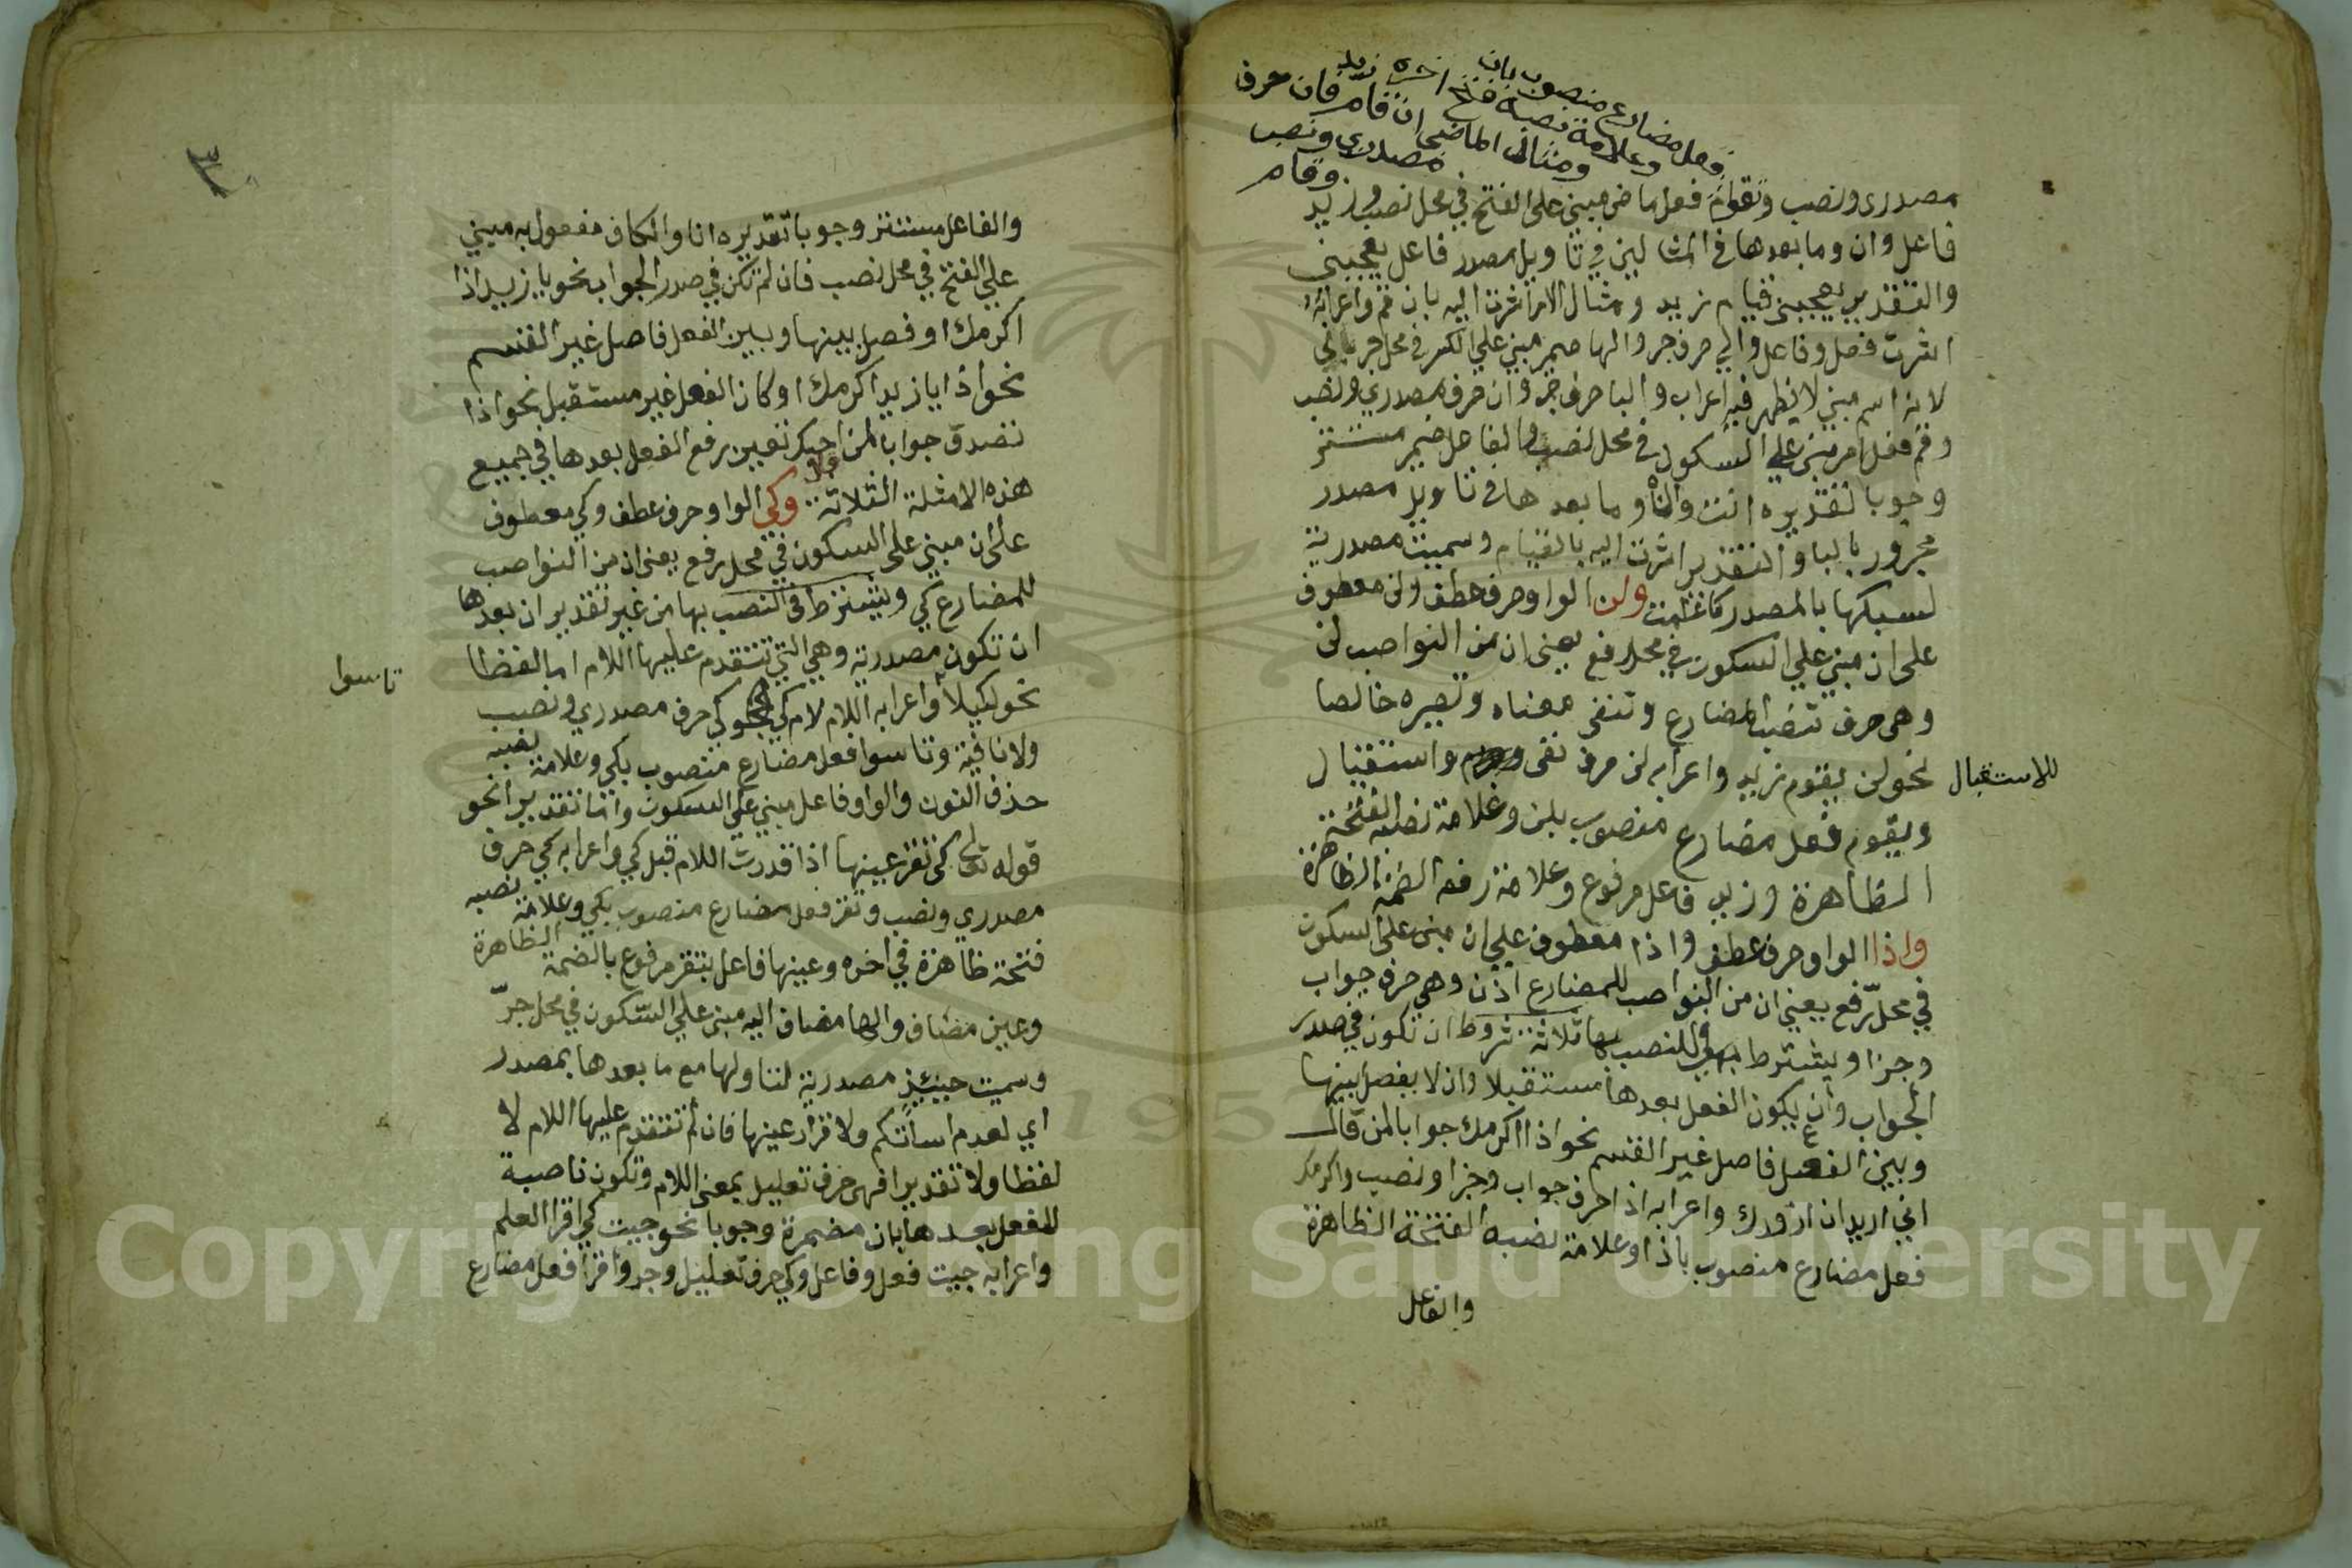 فعل مضارع منصوب بان
وعلامة نصبه فتح اخره زيد
ومثال الماضى ان قام فان حرف
مصدري ونصب
وقام
مصدرى ونصب وتقوم فعل ماض مبني على الفتح في محل نصب وزيد
فاعل وان وما بعدها في المثالين في تاويل مصدر فاعل يعجبني
والتقدير يعجبني قيام زيد ومثال الامر اشرت اليه بان قم واعرابه
اشرت فعل وفاعل والي حرف جر والها ضمير مبني علي الكسر في محل جر بالي
لانه اسم مبني لا يظهر فيه اعراب والبا حرف جر وان حرف مصدري ونصب
وقم فعل امر مبني علي السكون في محل نصب والفاعل ضمير مستتر
وجوبا تقديره انت وان وما بعدها في تاويل مصدر
مجرور بالبا والتقدير اشرت اليه بالقيام وسميت مصدرية
لسبكها بالمصدر كما علمت ولن الواو حرف عطف ولن معطوف
على ان مبني علي السكون في محل رفع يعني ان من النواصب لن
وهى حرف تنصب المضارع وتنفى معناه وتصيره خالصا
للاستقبال
نحو لن يقوم زيد واعرابه لن حرف نفى ونصب واستقبال
ويقوم فعل مضارع منصوب بلن وعلامة نصبه الفتحة
الظاهرة وزيد فاعل مرفوع وعلامة رفعه الضمة الظاهرة
واذا الواو حرف عطف واذا معطوف علي ان مبنى على السكون
في محل رفع يعني ان من النواصب للمضارع اذن وهي حرف جواب
وجزا ويشترط للنصب بها ثلاثة شروط ان تكون في صدر
الجواب وان يكون الفعل بعدها مستقبلا وان لا يفصل بينها
وبين الفعل فاصل غير القسم نحو اذا اكرمك جوابا لمن قال
اني اريد ان ازورك واعرابه اذا حرف جواب وجزا ونصب واكرمك
فعل مضارع منصوب باذا وعلامة نصبه الفتحة الظاهرة
والفاعل
٣
والفاعل مستتر وجوبا تقديره انا والكاف مفعول به مبني
علي الفتح في محل نصب فان لم تكن في صدر الجواب نحو يا زيد اذا
اكرمك او فصل بينها وبين الفعل فاصل غير القسم
نحو اذا يا زيد اكرمك او كان الفعل غير مستقبل نحو اذا
تصدق جوابا لمن احبك تعين رفع الفعل بعدها في جميع
هذه الامثلة الثلاثة وكي الواو حرف عطف وكي معطوف
على ان مبني على السكون في محل رفع يعنى ان من النواصب
للمضارع كي ويشترط في النصب بها من غير تقدير ان بعدها
ان تكون مصدرية وهي التي تتقدم عليها اللام اما لفظا
تاسوا
نحو لكيلا واعرابه اللام لام كي وكي حرف مصدري ونصب
ولا نافية وتاسوا فعل مضارع منصوب بكي وعلامة نصبه
حذف النون والواو فاعل مبني علي السكون واما تقديرا نحو
قوله تعالى كى تقر عينها اذا قدرت اللام قبل كي واعرابه كي حرف
مصدري ونصب وتقر فعل مضارع منصوب بكي وعلامة نصبه
فتحة ظاهرة في اخره وعينها فاعل بتقر مرفوع بالضمة الظاهرة
وعين مضاف والها مضاف اليه مبني علي السكون في محل جر
وسميت حينئذ مصدرية لتاولها مع ما بعدها بمصدر
اي لعدم اساتكم ولاقرار عينها فان لم تتقدم عليها اللام لا
لفظا ولا تقديرا فهى حرف تعليل بمعنى اللام وتكون ناصبة
للفعل بعدها بان مضمرة وجوبا نحو جيت كي اقرا العلم
واعرابه جيت فعل وفاعل وكي حرف تعليل وجر واقرا فعل مضارع
Copyright © King Saud University
1957